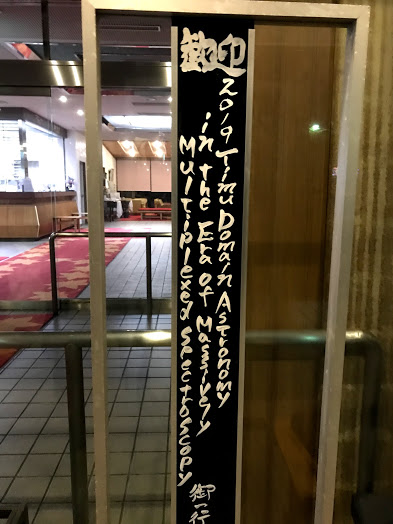 歓迎
2019 Timu Domain Astronomy
in the Era of Massively
Multiplexed spectroscopy
御一行